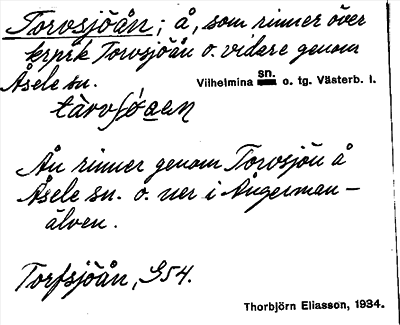 Torvsjöån; å, som rinner över
krprk Torvsjöån o. vidare genom
Åsele sn.
Vilhelmina sn. o. tg. Västerb. l.
Ån rinner genom Torvsjön å
Åsele sn. o. ner i Ångerman–
älven.
Torfsjöån, G54.
Thorbjörn Eliasson, 1934.